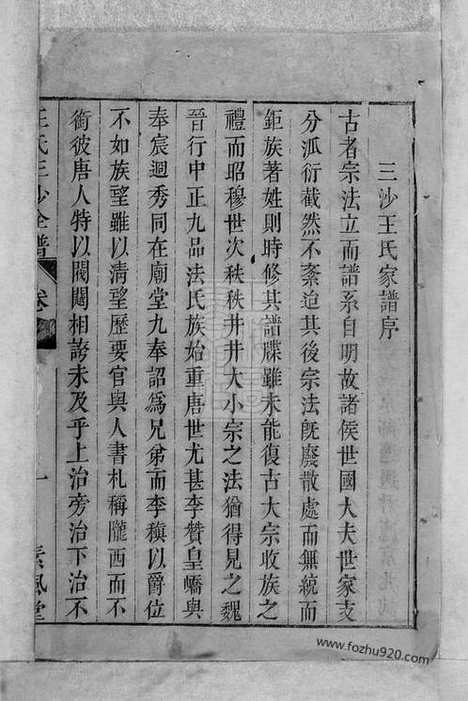 三沙王氏家譜序
古者宗法立而譜系自明故諸侯世國大夫世家支
分泒衍截然不紊迨其後宗法旣廢散處而無統而
鉅族著姓則時修其譜牒雖未能復古大宗收族之
禮而昭穆世次秩秩井井大小宗之法猶得見之魏
晉行中正九品法氏族始重唐世尤甚李贊皇嶠與
奉宸迥秀同在廟堂九奉詔爲兄弟而李稹以爵位
不如族望雖以清望歷要官與人書札稱隴西而不
銜彼唐人特以閥閱相誇未及乎上治旁治下治不
王氏三沙全譜
卷
一
素風堂
www.fozhu920.com